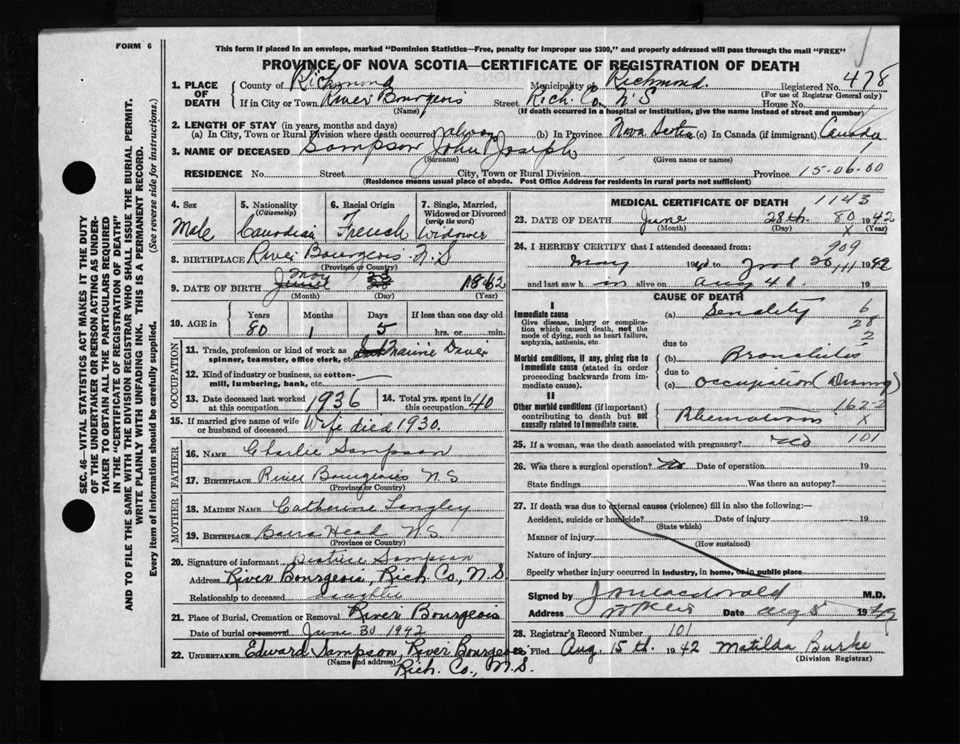 FORM 6
This form if placed in an envelope, marked "Dominion Statistics—Free, penalty for improper use $300," and properly addressed will pass through the mail "FREE"
PROVINCE OF NOVA SCOTIA—CERTIFICATE OF REGISTRATION OF DEATH
SEC. 46—VITAL STATISTICS ACT MAKES IT THE DUTY
OF THE UNDERTAKER OR PERSON ACTING AS UNDER-
TAKER TO OBTAIN ALL THE PARTICULARS REQUIRED
IN THE "CERTIFICATE OF REGISTRATION OF DEATH"
AND TO FILE THE SAME WITH THE DIVISION REGISTRAR WHO SHALL ISSUE THE BURIAL PERMIT.
WRITE PLAINLY WITH UNFADING INK. THIS IS A PERMANENT RECORD.
Every item of information should be carefully supplied. (See reverse side for instructions.)
1. PLACE OF DEATH County of Richmond Municipality of Richmond. Registered No. 478
(For use of Registrar General only)
If in City or Town River Bourgeois Street Rich. Co. N.S House No.
(Name) (If death occurred in a hospital or institution, give the name instead of street and number)
2. LENGTH OF STAY (in years, months and days)
(a) In City, Town or Rural Division where death occurred always (b) In Province Nova Scotia (c) In Canada (if immigrant) Canada
3. NAME OF DECEASED Sampson John Joseph
(Surname) (Given name or names)
RESIDENCE No. Street City, Town or Rural Division Province 15-06.00
(Residence means usual place of abode. Post Office Address for residents in rural parts not sufficient)
4. Sex Male
5. Nationality (Citizenship) Canadian
6. Racial Origin French
7. Single, Married, Widowed or Divorced (write the word) Widower
8. BIRTHPLACE River Bourgeois N.S
(Province or Country)
9. DATE OF BIRTH May 23 1862
(Month) (Day) (Year)
10. AGE in Years 80 Months 1 Days 5 If less than one day old hrs. or min.
OCCUPATION
11. Trade, profession or kind of work as spinner, teamster, office clerk, etc.
12. Kind of industry or business, as cotton-mill, lumbering, bank, etc. —
13. Date deceased last worked at this occupation 1936 14. Total yrs. spent in this occupation 40
15. If married give name of wife or husband of deceased Wife died 1930.
FATHER
16. NAME Charlie Sampson
17. BIRTHPLACE River Bourgeois N.S
(Province or Country)
MOTHER
18. MAIDEN NAME Catherine Langley
19. BIRTHPLACE Head N.S
(Province or Country)
20. Signature of informant Beatrice Sampson
Address River Bourgeois, Rich. Co., N.S
Relationship to deceased daughter
21. Place of Burial, Cremation or Removal River Bourgeois
Date of burial or removal June 30 1942
22. UNDERTAKER Edward Sampson, River Bourgeois
(Name and address) Rich. Co., N.S.
MEDICAL CERTIFICATE OF DEATH 1143
23. DATE OF DEATH June 28th. 80 1942
(Month) (Day) X (Year)
24. I HEREBY CERTIFY that I attended deceased from: 909
May
and last saw h im alive on Aug
CAUSE OF DEATH
I
Immediate cause
Give disease, injury or complication which caused death, not the mode of dying, such as heart failure, asphyxia, asthenia, etc.
(a) Senality 6
28
2
due to
Morbid conditions, if any, giving rise to immediate cause (stated in order proceeding backwards from immediate cause).
(b) Bronchitis
due to
(c) occupation
II
Other morbid conditions (if important) contributing to death but not causally related to immediate cause.
162-2
Rhematism X
25. If a woman, was the death associated with pregnancy? No 101
26. Was there a surgical operation? No Date of operation 19
State findings Was there an autopsy?
27. If death was due to external causes (violence) fill in also the following:—
Accident, suicide or homicide? Date of injury 19
(State which)
Manner of injury
(How sustained)
Nature of injury
Specify whether injury occurred in industry, in home, or in public place
Signed by J Macdonald M.D.
Address Date Aug 8 19
28. Registrar's Record Number 101
29. Filed Aug. 15th. 1942 Matilda Burke
(Division Registrar)